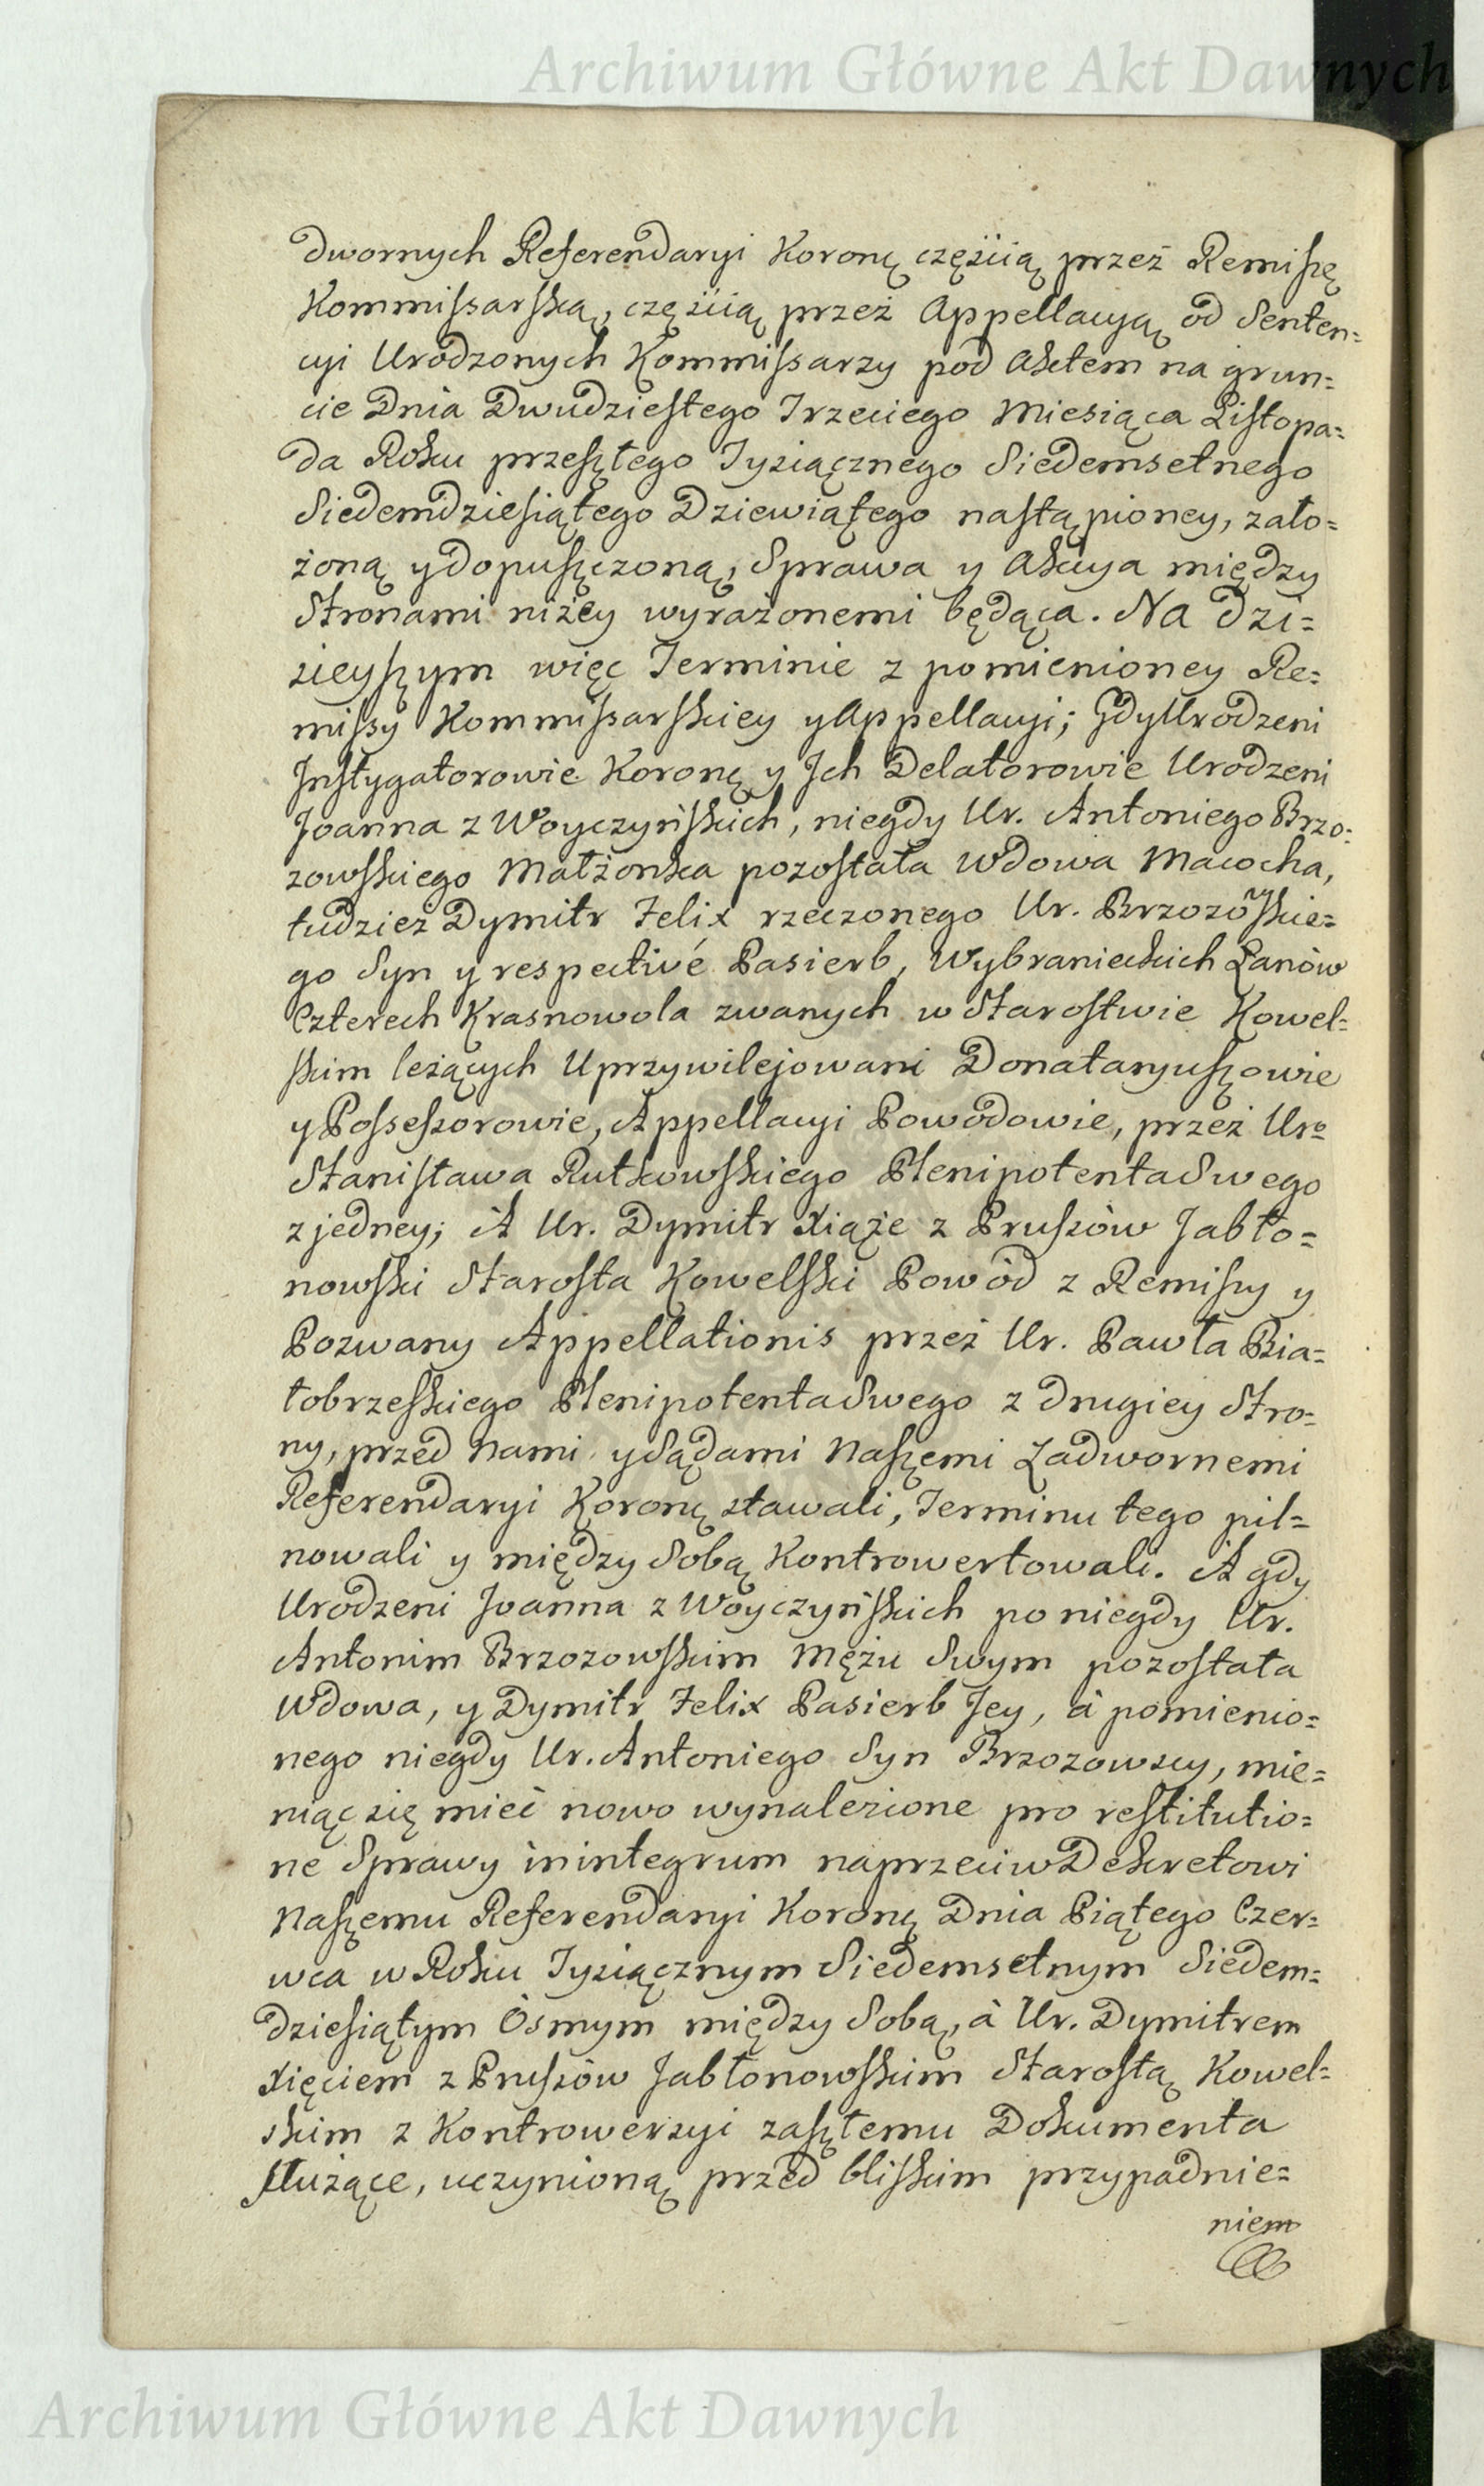 Archiwum Główne Akt Dawnych
dwornych Referendaryi Koronę częścią przez Remiſsę
Kommiſsarſką, częścią przez Appellacyą od Senten=
cyi Urodzonych Kommiſsarzy pod Aktem na grun=
cie Dnia Dwudziestego Trzeciego Miesiąca Liſtopa=
da Roku przeſzłego Tysiącznego Siedemsetnego
Siedemdzieſiątego Dziewiątego naſtąpioney, zało=
żoną y dopuſzczoną, Sprawa y Akcya między
Stronami niżey wyrażonemi będąca. Na dzi=
sieyſzym więc Terminie z pomienioney Re=
miſsy Kommiſsarſkiey y Appellacyi; Gdy Urodzeni
Inſtygatorowie Koronę y Jch Delatorowie Urodzeni
Joanna z Woyczyńſkich, niegdy Ur. Antoniego Brzo=
zowſkiego Małżonka pozoſtała Wdowa Macocha,
tudzież Dymitr Felix rzeczonego Ur. Brzozôſkie=
go Syn y respectivé Pasierb, Wybranieckich Łanów
Czterech Krasnowola zwanych w Staroſtwie Kowel=
ſkim leżących Uprzywilejowani Donataryuſzowie
y Poſseſsorowie, Appellacyi Powodowie, przez Uro
Staniſława Rutkowſkiego Plenipotenta Swego
z jedney; A Ur. Dymitr Xiąże z Pruſsów Jabło=
nowſki Staroſta Kowelſki Powód z Remiſsy y
Pozwany Appellationis przez Ur. Pawła Bia=
łobrzeſkiego Plenipotenta Swego z drugiey Stro=
ny, przed Nami y Sądami Naſzemi Zadwornemi
Referendaryi Koronę stawali, Terminu tego pil=
nowali y między Sobą Kontrowertowali. A gdy
Urodzeni Joanna z Woyczyńſkich po niegdy Ur.
Antonim Brzozowſkim Mężu Swym pozoſtała
Wdowa, y Dymitr Felix Pasierb Jey, à pomienio=
nego niegdy Ur. Antoniego Syn Brzozowscy, mie=
niąc się mieć nowo wynalezione pro reſtitutio=
ne Sprawy in integrum naprzeciw Dekretowi
Naſzemu Referendaryi Koronę Dnia Piątego Czer=
wca w Roku Tysiącznym Siedemsetnym Siedem=
dzieſiątym Ósmym między Sobą, à Ur. Dymitrem
Xięciem z Pruſsów Jabłonowſkim Staroſtą Kowel=
skim z Kontrowersyi zaſzłemu Dokumenta
ſłużące, uczynioną przed bliſkim przypadnie=
niem
Archiwum Główne Akt Dawnych